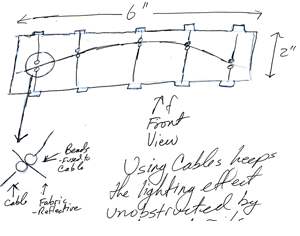 6"
2"
↑ of
Front
View
Beads
-Fused to
Cable
Cable
Fabric
-Reflective
Using Cables keeps
the lighting effect
unobstructed by